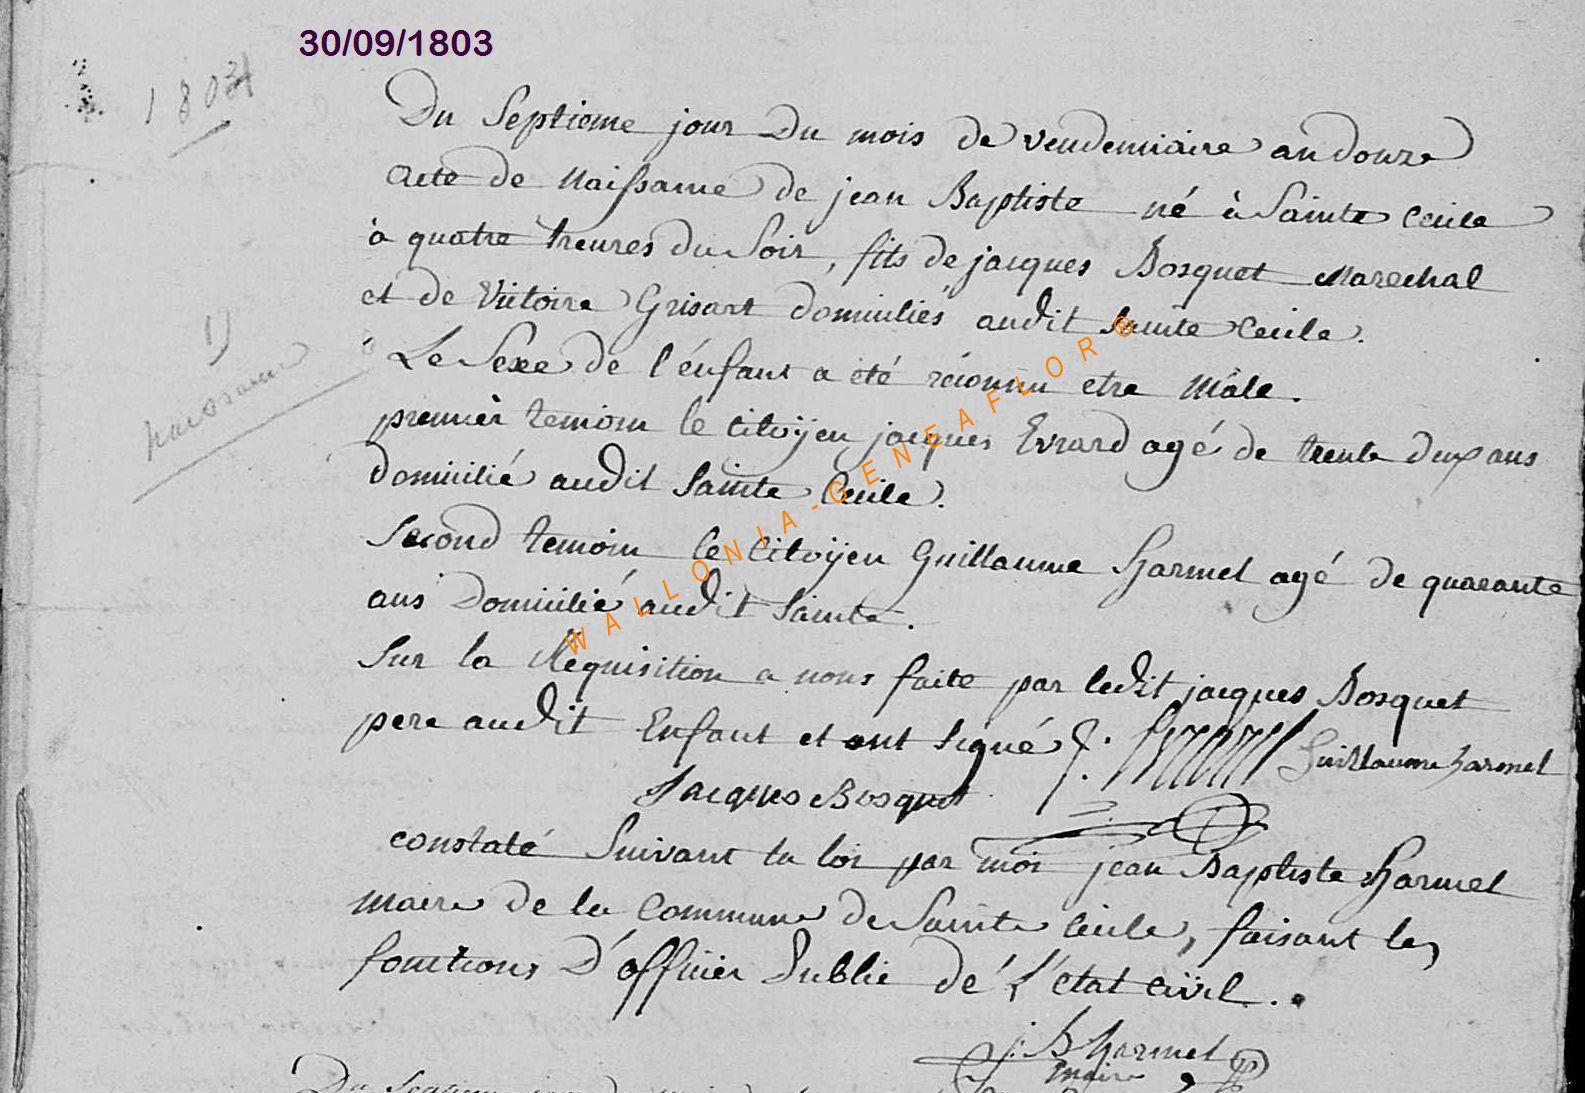 30/09/1803
1803
Du Septieme jour Du mois de vendemiaire an douze
acte de Naissance de jean Baptiste né à Sainte Cecile
à quatre heures du Soir, fils de jacques Bosquet Marechal
et de Victoire Grisart domiciliés audit Sainte Cecile.
Le Sexe de l'énfant a été réconnu etre Mâle.
premiér temoin le Citoÿen jacques Evrard agé de trente deux ans
domicilié audit Sainte Cecile.
Second temoin le Citoÿen Guillaume Harmel agé de quarante
ans Domicilié audit Sainte.
Sur la Réquisition a nous faite par ledit jacques Bosquet
pere audit Enfant et ont signé J: Evrard Guillaume harmel
Jacques Bosquet
constaté Suivant la loi par moi jean Baptiste Harmel
Maire de la Commune de Sainte Cecile, faisant les
fonctions D'officiér Public dé L'état Civil.
j. B harmel
maire
1)
naissance
WALLONIA-GENEAFLOR®